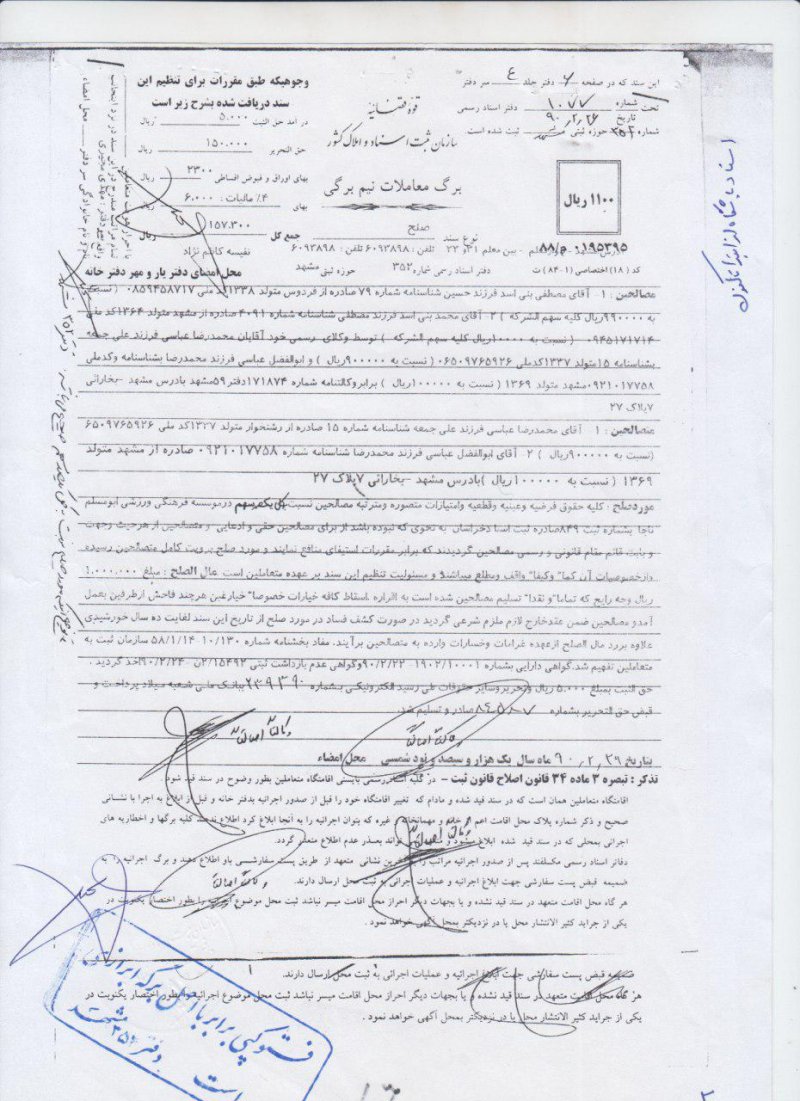 این سند که در صفحه ۶ دفتر جلد ٤ سر دفتر
تحت شماره ۱۰۷۷ دفتر اسناد رسمی
تاریخ ۹۰٫۲٫۲۶
شماره ۳۵۲ حوزه ثبتی مشهد ثبت شده است.
قوه قضائیه
سازمان ثبت اسناد و املاک کشور
برگ معاملات نیم برگی
۱۱۰۰ ریال
وجوهیکه طبق مقررات برای تنظیم این
سند دریافت شده بشرح زیر است
در آمد حق الثبت ۵.۰۰۰ ریال
حق التحریر ۱۵۰.۰۰۰ ریال
بهای اوراق و قبوض اقساطی ۲۳۰۰
بهای ۴٪ مالیات : ۶.۰۰۰ ریال
جمع کل ۱۵۷.۳۰۰ ریال
نوع سند صلح
۰۱۹۵۳۹۵ م/۸۸
بین معلم ۳۱و ۲۳ تلفن : ۶۰۹۳۸۹۸ تلفن : ۶۰۹۳۸۹۸ نفیسه کاظم نژاد
کد (۱۸) اختصاصی (۰۱-۸۴) ث دفتر اسناد رسمی شماره ۳۵۲ حوزه ثبتی مشهد محل امضای دفتر یار و مهر دفتر خانه
مصالحین : ۱- آقای مصطفی بنی اسد فرزند حسین شناسنامه شماره ۷۹ صادره از فردوس متولد ۱۳۳۸ کدملی ۰۸۵۹۴۵۸۷۱۷ ( نسبت
به ۹۹۰۰۰۰ریال کلیه سهم الشرکه ) ۲- آقای محمد بنی اسد فرزند مصطفی شناسنامه شماره ۴۰۹۱ صادره از مشهد متولد ۱۳۶۴ کد ملی
۰۹۴۵۱۷۱۷۱۴ ( نسبت به ۱۰۰۰۰ریال کلیه سهم الشرکه ) توسط وکلای رسمی خود آقایان محمدرضا عباسی فرزند علی جمعه
بشناسنامه ۱۵متولد ۱۳۳۷کدملی ۰۶۵۰۹۷۶۵۹۲۶ ( نسبت به ۹۰۰۰۰۰ریال ) و ابوالفضل عباسی فرزند محمدرضا بشناسنامه وکدملی
۰۹۲۱۰۱۷۷۵۸مشهد متولد ۱۳۶۹ ( نسبت به ۱۰۰۰۰۰ریال ) برابر وکالتنامه شماره ۱۷۱۸۷۴دفتر ۵۹مشهد بادرس مشهد -بخارائی
۷پلاک ۲۷
متصالحین : ۱- آقای محمدرضا عباسی فرزند علی جمعه شناسنامه شماره ۱۵ صادره از رشتخوار متولد ۱۳۳۷کد ملی ۶۵۰۹۷۶۵۹۲۶
(نسبت به ۹۰۰۰۰۰ریال ) ۲- آقای ابوالفضل عباسی فرزند محمدرضا شناسنامه شماره ۰۹۲۱۰۱۷۷۵۸ صادره از مشهد متولد
۱۳۶۹ ( نسبت به ۱۰۰۰۰۰ ریال )بادرس مشهد -بخارائی ۷پلاک ۲۷
موردصلح : کلیه حقوق فرضیه وعینیه وقطعیه وامتیازات متصوره ومترتبه مصالحین نسبت درموسسه فرهنگی ورزشی ابومسلم
بشماره ثبت ۸۴۹صادره ثبت به نحوی که نبوده باشد از برای مصالحین حقی و ادعایی و متصالحین از هرحیث وجهت
و بابت قائم مقام قانونی و رسمی مصالحین گردیدند که برابر مقررات استیفای منافع نمایند و مورد صلح برویت کامل متصالحین رسیده
وازخصوصیات آن کما" وکیفا" واقف ومطلع میباشند و مسئولیت تنظیم این سند بر عهده متعاملین است مال الصلح : مبلغ ۱.۰۰۰.۰۰۰
ریال وجه رایج که تماما" و نقدا" تسلیم مصالحین شده است به اقراره .اسقاط کافه خیارات خصوصا" خیارغبن هرچند فاحش ازطرفین بعمل
آمدو مصالحین ضمن عقدخارج لازم ملزم شرعی گردید در صورت کشف فساد در مورد صلح از تاریخ این سند لغایت ده سال خورشیدی
علاوه بررد مال الصلح ازعهده غرامات وخسارات وارده به متصالحین برآیند. مفاد بخشنامه شماره ۱۰/۱۳۰-۵۸/۱/۱۴ سازمان ثبت به
متعاملین تفهیم شد.گواهی دارایی بشماره ۱۹۰۲/۱۰۰۰۱-۹۰/۲/۲۲وگواهی عدم بازداشت ثبتی ۲/۱۵۴۹۲ن-۹۰/۲/۲۴اخذ گردید .
حق الثبت بمبلغ ۵.۰۰۰ ریال وتحریروسایر حقوقات طی رسید الکترونیکی بشماره ۲۳۹۳۹۰ ببانک ملی شعبه میلاد پرداخت و
قبض حق التحریر بشماره ۸۴۵۰۰۷ صادر و تسلیم شد.
بتاریخ ۹۰٫۲٫۲۹ ماه سال یک هزار و سیصد و نود شمسی محل امضاء
تذکر : تبصره ۳ ماده ۳۴ قانون اصلاح قانون ثبت – در کلیه اسناد رسمی بایستی اقامتگاه متعاملین بطور وضوح در سند قید شود
اقامتگاه متعاملین همان است که در سند قید شده و مادام که تغییر اقامتگاه خود را قبل از صدور اجرائیه بدفتر خانه و قبل از ابلاغ به اجرا با نشانی
صحیح و ذکر شماره پلاک محل اقامت اعم از خانه و مهمانخانه و غیره که بتوان اجرائیه را به آنجا ابلاغ کرد اطلاع ندهند کلیه برگها و اخطاریه های
اجرائی بمحلی که در سند قید شده ابلاغ میشود و متعهد نمی تواند بعذر عدم اطلاع متعذر گردد.
دفاتر اسناد رسمی مکلفند پس از صدور اجرائیه مراتب را به آخرین نشانی متعهد از طریق پست سفارشی باو اطلاع دهند و برگ اجرائیه را به
ضمیمه قبض پست سفارشی جهت ابلاغ اجرائیه و عملیات اجرائی به ثبت محل ارسال دارند.
هر گاه محل اقامت متعهد در سند قید نشده و یا بجهات دیگر احراز محل اقامت میسر نباشد ثبت محل موضوع اجرائیه را بطور اختصار یکنوبت در
یکی از جراید کثیر الانتشار محل یا در نزدیکتر بمحل آگهی خواهد نمود .
ضمیمه قبض پست سفارشی جهت ابلاغ اجرائیه و عملیات اجرائی به ثبت محل ارسال دارند.
هر گاه محل اقامت متعهد در سند قید نشده و یا بجهات دیگر احراز محل اقامت میسر نباشد ثبت محل موضوع اجرائیه را بطور اختصار یکنوبت در
یکی از جراید کثیر الانتشار محل یا در نزدیکتر بمحل آگهی خواهد نمود .
فتوکپی برابر با اصل برگ ابرازی
دفتر ۳۵۲ مشهد
است